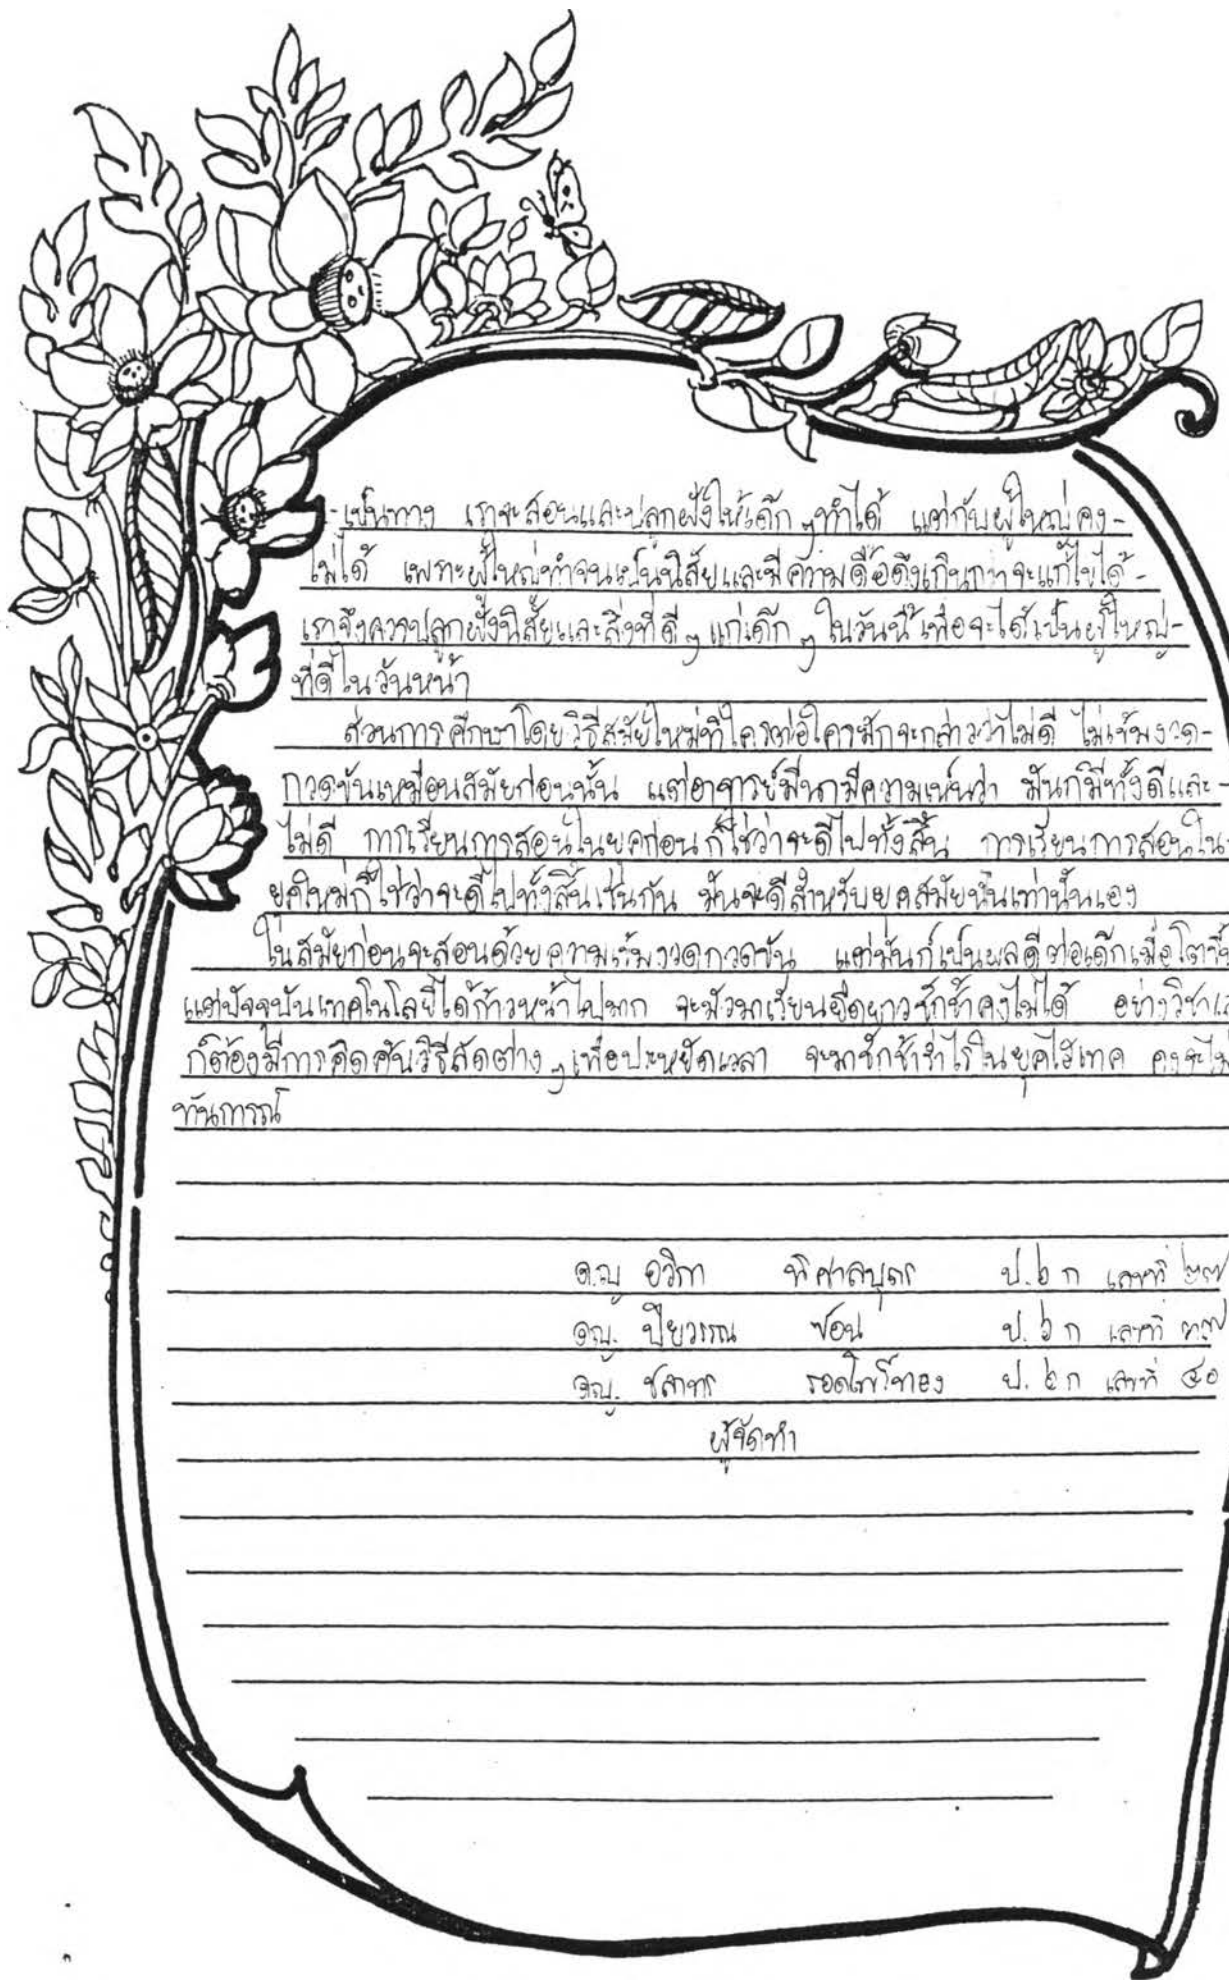 -เป็นทาง เราจะสอนและปลูกฝังให้เด็กๆทำได้ แต่กับผู้ใหญ่คง-
ไม่ได้ เพราะผู้ใหญ่ทำจนเป็นนิสัยและมีความดื้อดึงเกินกว่าจะแก้ไขได้-
เราจึงควรปลูกฝังนิสัยและสิ่งที่ดีๆ แก่เด็กๆ ในวันนี้ เพื่อจะได้เป็นผู้ใหญ่-
ที่ดีในวันหน้า
ส่วนการศึกษาโดยวิธีสมัยใหม่ที่ใครต่อใครมักจะกล่าวว่าไม่ดี ไม่เข้มงวด-
กวดขันเหมือนสมัยก่อนนั้น แต่อาจารย์มีนามีความเห็นว่า มันก็มีทั้งดีและ-
ไม่ดี การเรียนการสอนในยุคก่อนก็ใช่ว่าจะดีไปทั้งสิ้น การเรียนการสอนใน-
ยุคใหม่ก็ใช่ว่าจะดีไปทั้งสิ้นเช่นกัน มันจะดีสำหรับยุคสมัยนั้นเท่านั้นเอง
ในสมัยก่อนจะสอนด้วยความเข้มงวดกวดขัน แต่มันก็เป็นผลดีต่อเด็กเมื่อโตขึ้น
แต่ปัจจุบันเทคโนโลยีได้ก้าวหน้าไปมาก จะมัวมาเรียนยืดยาวชักช้าคงไม่ได้ อย่างวิชา
ก็ต้องมีการคิดค้นวิธีลัดต่างๆ เพื่อประหยัดเวลา จะมาชักช้าร่ำไรในยุคไฮเทค คงจะไม่
ทันการณ์
ด.ญ อวิกา พิศาลบุตร ป.๖ ก เลขที่ ๒๗
ด.ญ. ปิยวรรณ ซอน ป.๖ ก เลขที่ ๓๗
ด.ญ. ชลาทร รอดโพธิ์ทอง ป.๖ ก เลขที่ ๔๐
ผู้จัดทำ